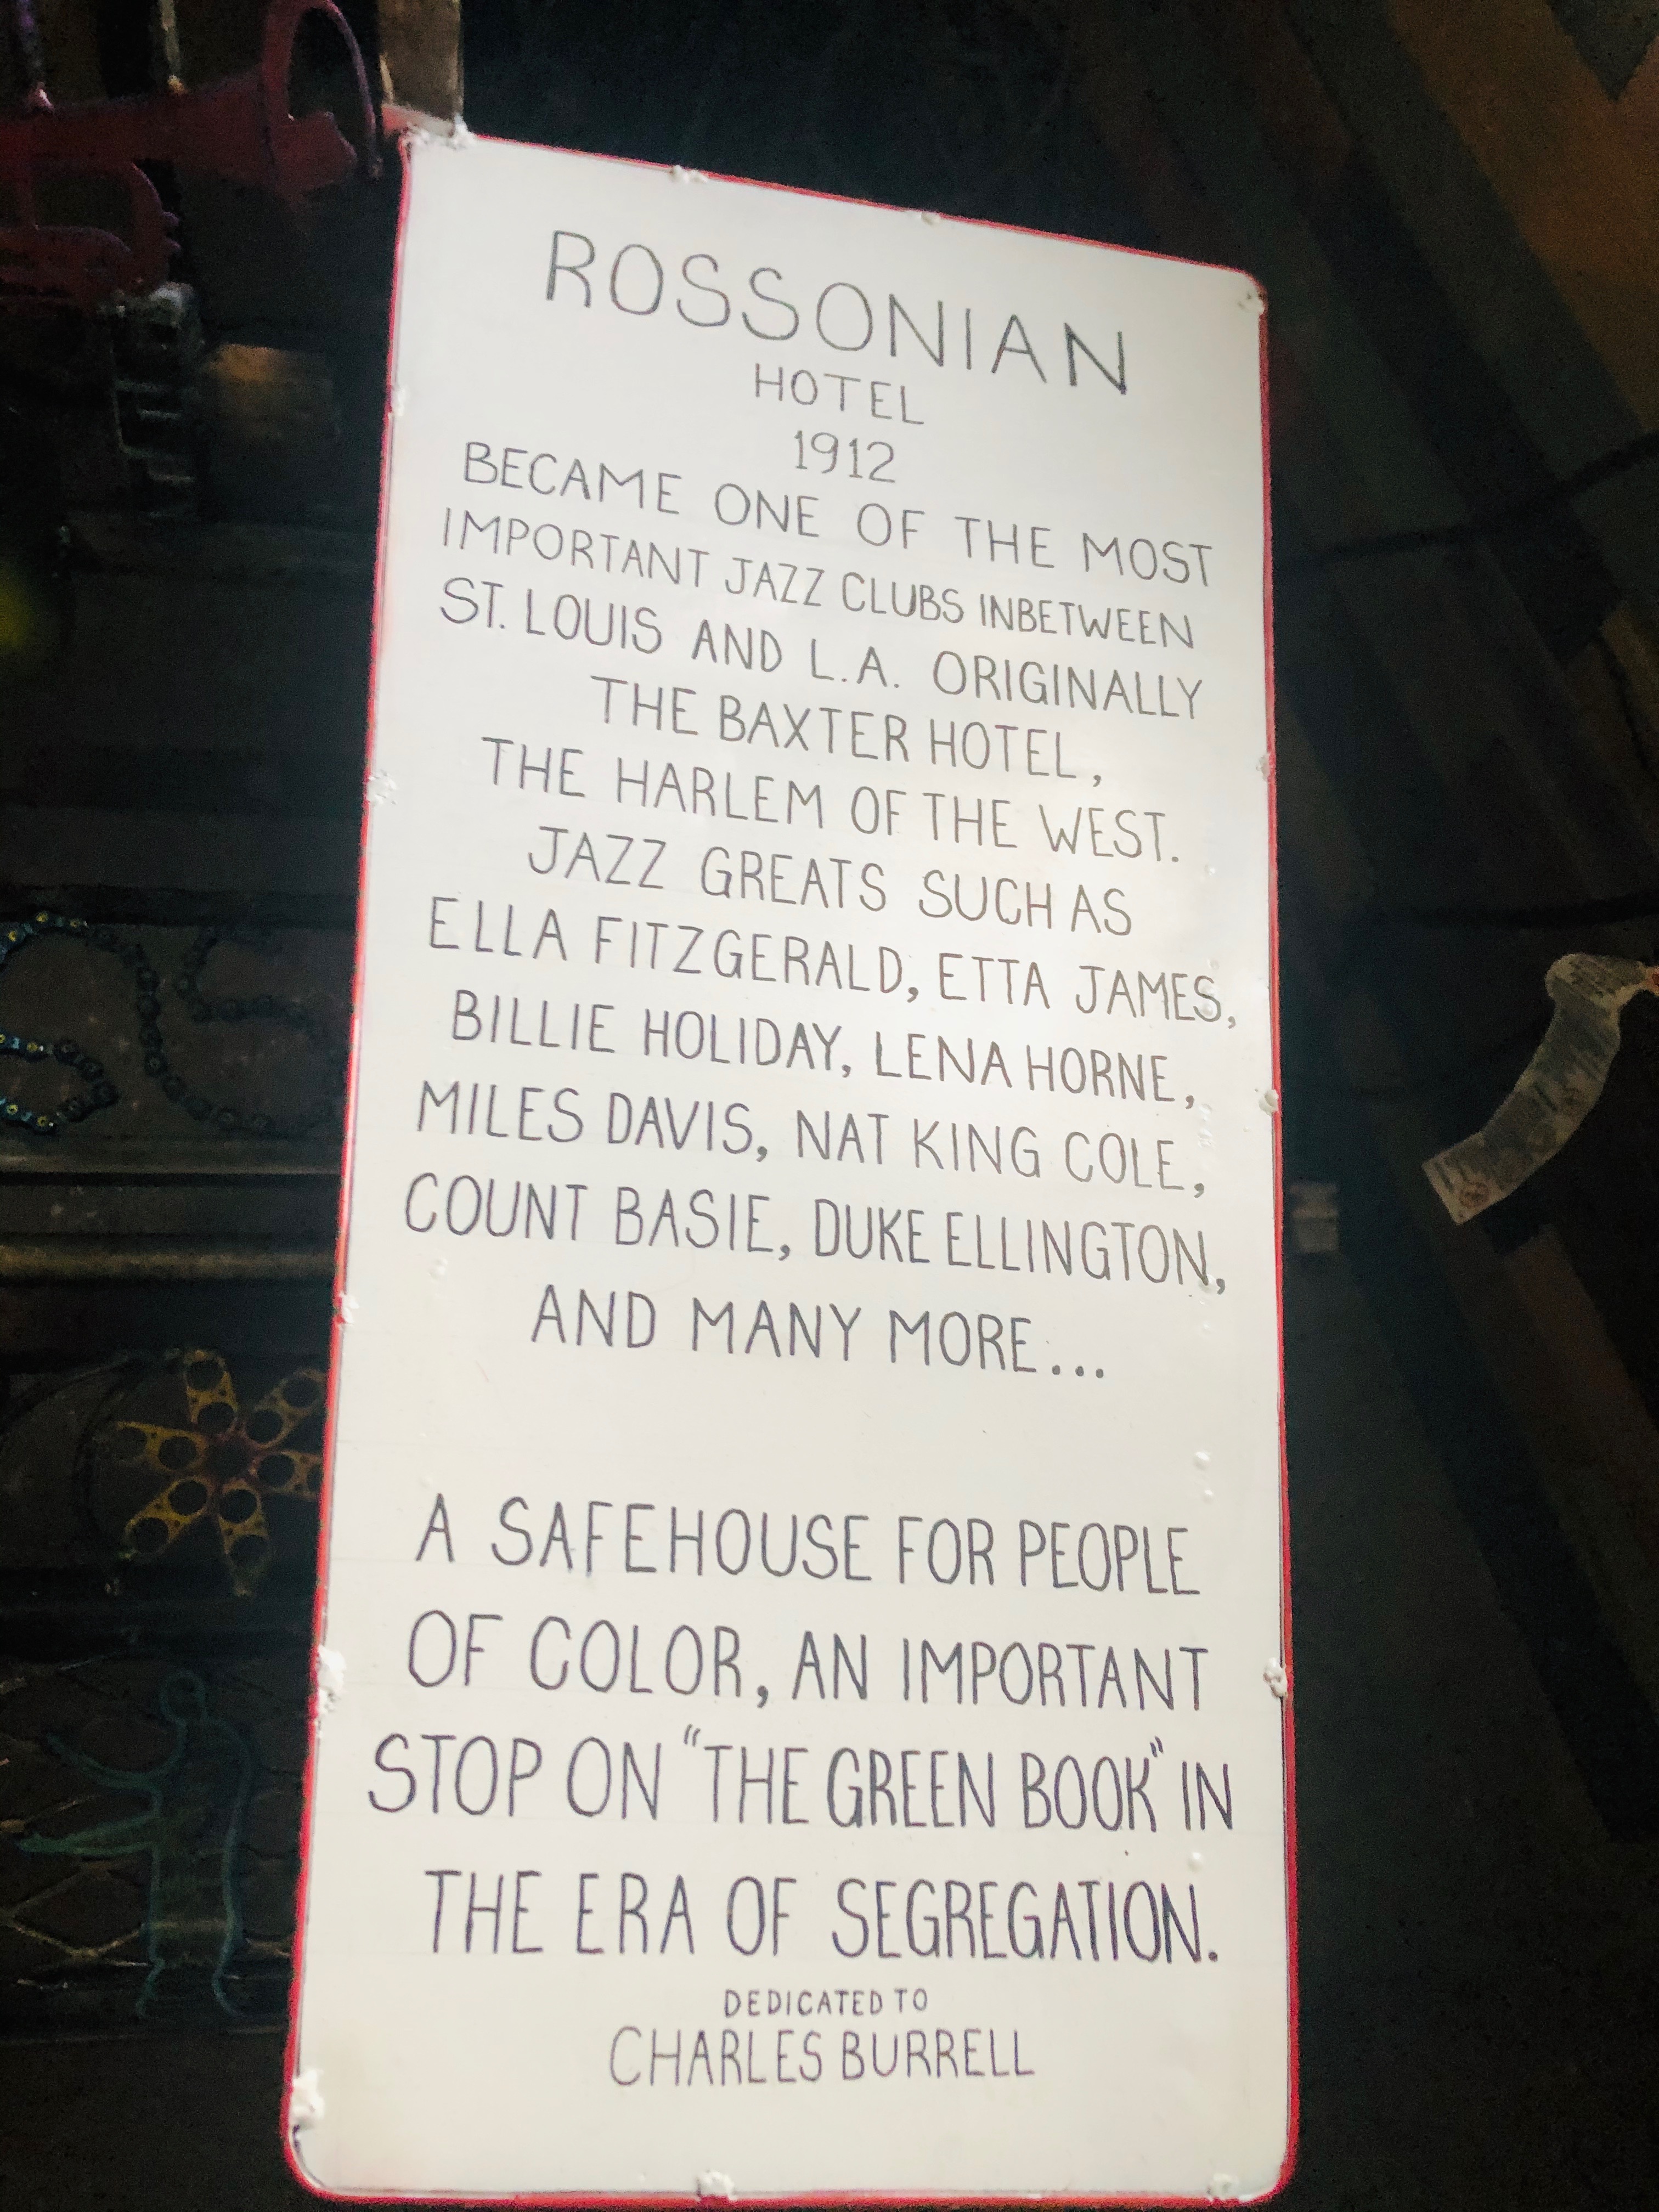 ROSSONIAN
HOTEL
1912
BECAME ONE OF THE MOST
IMPORTANT JAZZ CLUBS INBETWEEN
ST. LOUIS AND L.A. ORIGINALLY
THE BAXTER HOTEL,
THE HARLEM OF THE WEST.
JAZZ GREATS SUCH AS
ELLA FITZGERALD, ETTA JAMES,
BILLIE HOLIDAY, LENA HORNE,
MILES DAVIS, NAT KING COLE,
COUNT BASIE, DUKE ELLINGTON,
AND MANY MORE...
A SAFEHOUSE FOR PEOPLE
OF COLOR, AN IMPORTANT
STOP ON "THE GREEN BOOK" IN
THE ERA OF SEGREGATION.
DEDICATED TO
CHARLES BURRELL